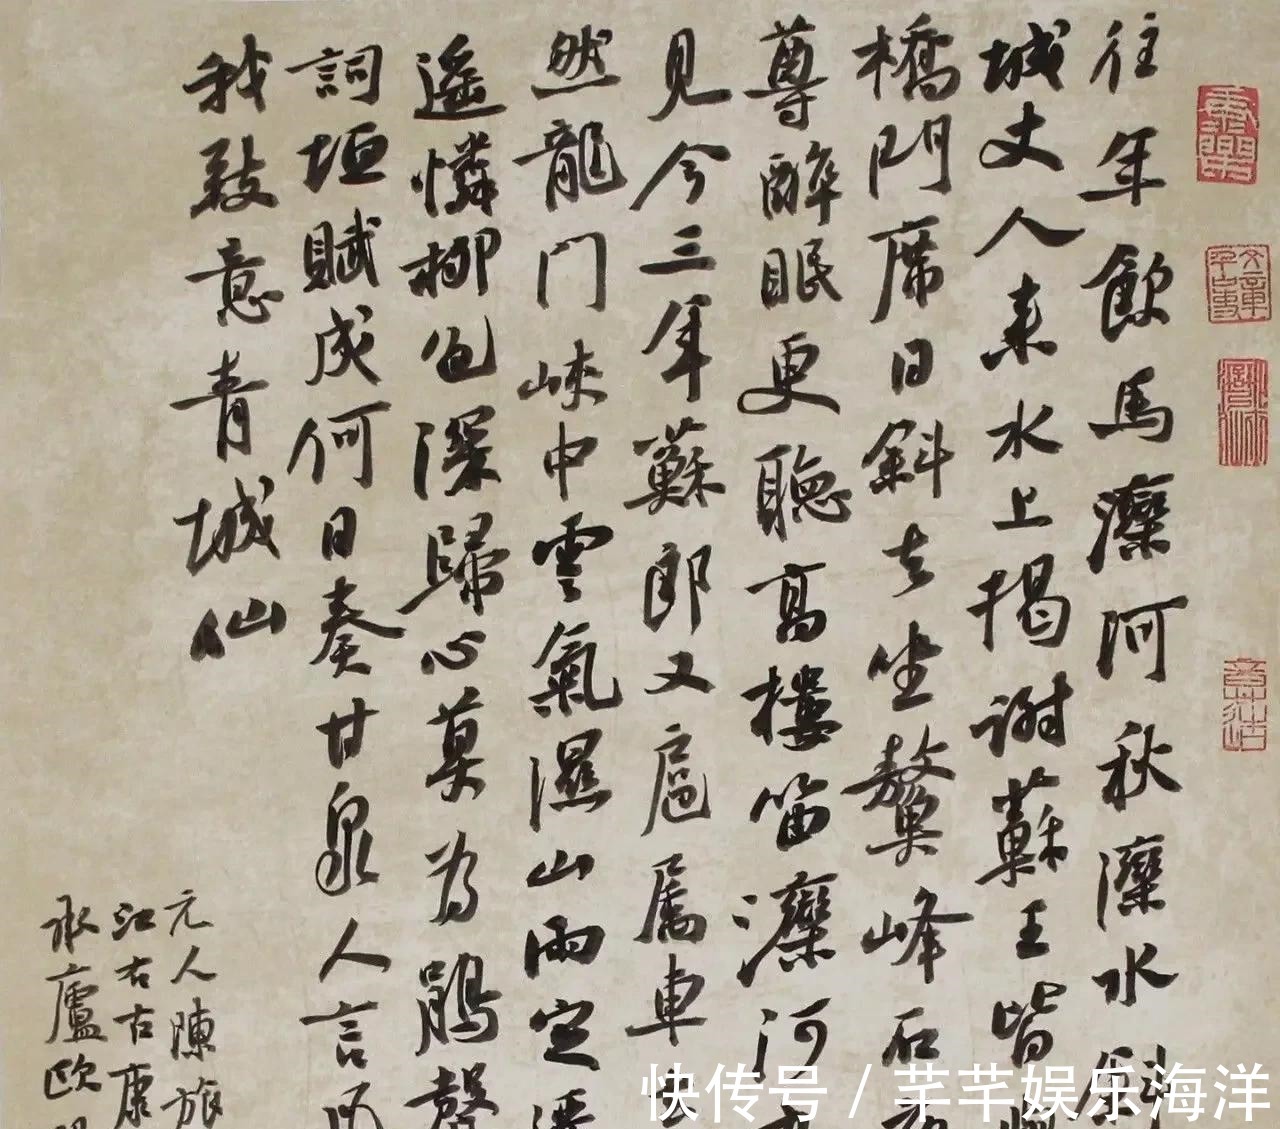 往年飲馬灤河秋灤水
城丈人来水上揭謝蘇王皆
橋門席日斜去坐鰲峰石
尊醉眠更聽高樓笛灤河
見今三年蘇郎又扈属車
然龍门峽中雲氣濕山雨定
遥憐柳色深歸心莫為鵑聲
詞垣賦成何日奏甘泉人言
我致意青城仙
元人陳旅
江右古康
永廬歐
快传号/芊芊娱乐海洋